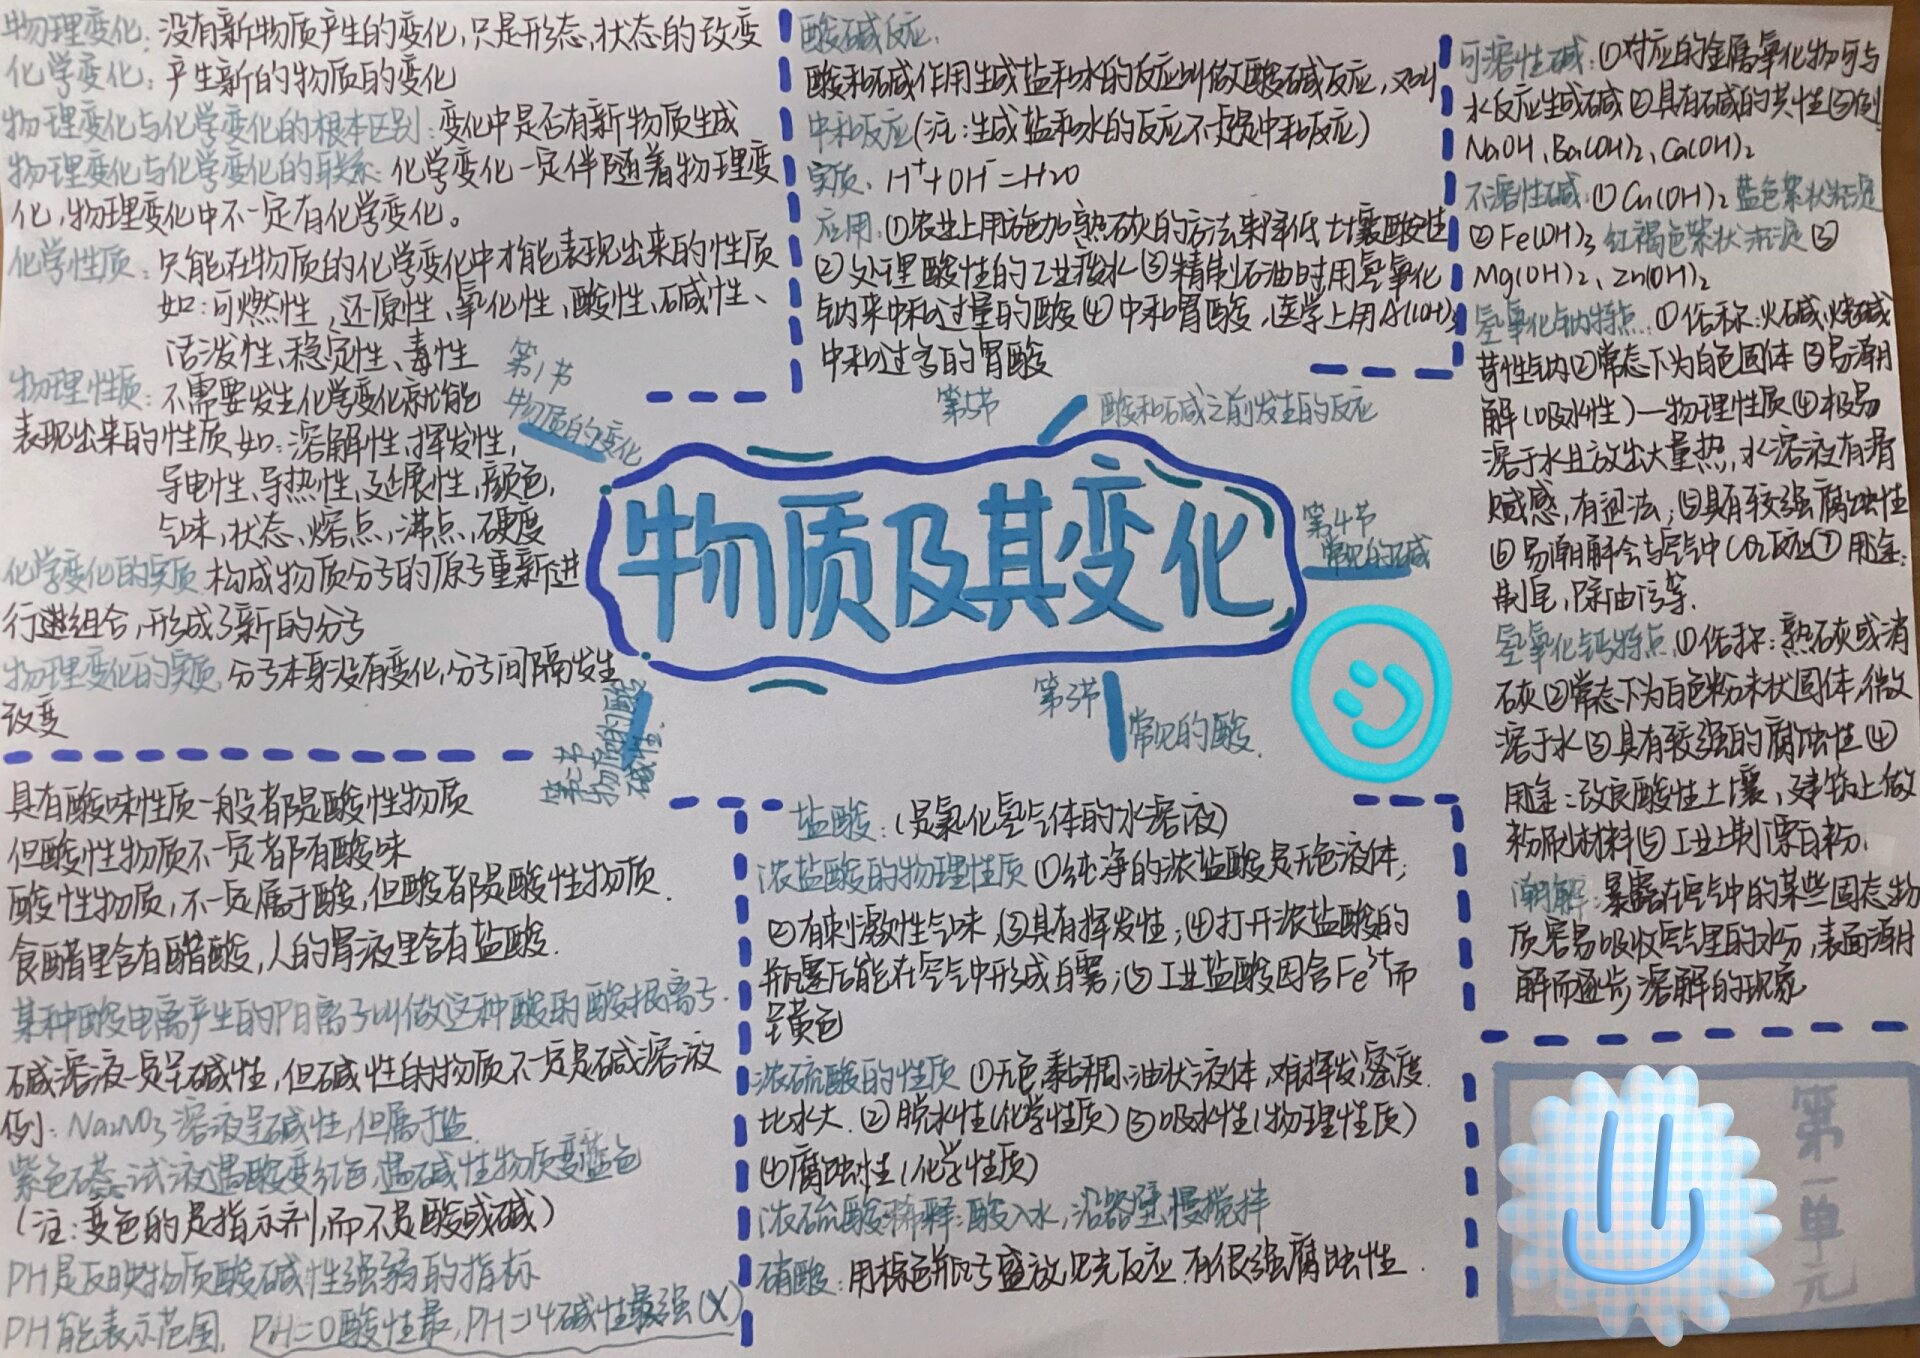 物理变化：没有新物质产生的变化，只是形态、状态的改变
化学变化：产生新的物质的变化
物理变化与化学变化的根本区别：变化中是否有新物质生成
物理变化与化学变化的联系：化学变化一定伴随着物理变
化，物理变化中不一定有化学变化。
化学性质：只能在物质的化学变化中才能表现出来的性质
如：可燃性，还原性、氧化性，酸性、碱性、
活泼性、稳定性、毒性
物理性质：不需要发生化学变化就能
表现出来的性质 如：溶解性，挥发性，
导电性、导热性，延展性，颜色，
气味，状态、熔点，沸点，硬度
化学变化的实质 构成物质分子的原子重新进
行组合，形成了新的分子
物理变化的实质，分子本身没有变化，分子间隔发生
改变
第1节
物质的变化
酸碱反应：
酸和碱作用生成盐和水的反应叫做酸碱反应，又叫
中和反应（注：生成盐和水的反应不一定是中和反应）
实质：H⁺+OH⁻=H2O
应用：①农业上用施加熟石灰的方法来降低土壤酸性
②处理酸性的工业废水③精制石油时用氢氧化
钠来中和过量的酸④中和胃酸，医学上用Al(OH)3
中和过多的胃酸
第5节
酸和碱之前发生的反应
可溶性碱：①对应的金属氧化物可与
水反应生成碱②具有碱的共性③例
NaOH、Ba(OH)2、Ca(OH)2
不溶性碱：①Cu(OH)2 蓝色絮状沉淀
②Fe(OH)3 红褐色絮状沉淀③
Mg(OH)2、Zn(OH)2
氢氧化钠特点：①俗称：火碱、烧碱
苛性钠②常态下为白色固体③易潮
解（吸水性）—物理性质④极易
溶于水且放出大量热，水溶液有滑
腻感，有涩法；⑤具有较强腐蚀性
⑥易潮解会与空气中CO2反应⑦用途：
制皂，除油污等.
氢氧化钙特点，①俗称：熟石灰或消
石灰②常态下为白色粉末状固体，微
溶于水③具有较强的腐蚀性④
用途：改良酸性土壤，建筑上做
粉刷材料⑤工业上制漂白粉、
潮解：暴露在空气中的某些固态物
质容易吸收空气里的水分，表面潮
解而逐步溶解的现象
第4节
常见的碱
物质及其变化
第3节
常见的酸.
第二节
物质的酸
碱性.
具有酸味性质一般都是酸性物质
但酸性物质不一定都有酸味
酸性物质，不一定属于酸，但酸都是酸性物质.
食醋里含有醋酸，人的胃液里含有盐酸.
某种酸电离产生的阴离子叫做这种酸的酸根离子.
碱溶液一定呈碱性，但碱性的物质不一定是碱溶液
例：Na2NO3 溶液呈碱性，但属于盐.
紫色石蕊试液遇酸变红色，遇碱性物质变蓝色
（注：变色的是指示剂，而不是酸或碱）
PH是反映物质酸碱性强弱的指标
PH能表示范围，PH=0酸性最，PH=14碱性最强（X）
盐酸：（是氯化氢气体的水溶液）
浓盐酸的物理性质 ①纯净的浓盐酸是无色液体；
②有刺激性气味，③具有挥发性；④打开浓盐酸的
瓶塞后能在空气中形成白雾；⑤工业盐酸因含Fe³⁺而
呈黄色
浓硫酸的性质 ①无色黏稠、油状液体，难挥发，密度
比水大. ②脱水性（化学性质）③吸水性（物理性质）
④腐蚀性（化学性质）
浓硫酸稀释：酸入水，沿器壁慢搅拌
硝酸：用棕色瓶子盛放 见光反应. 有很强腐蚀性.
第一单元